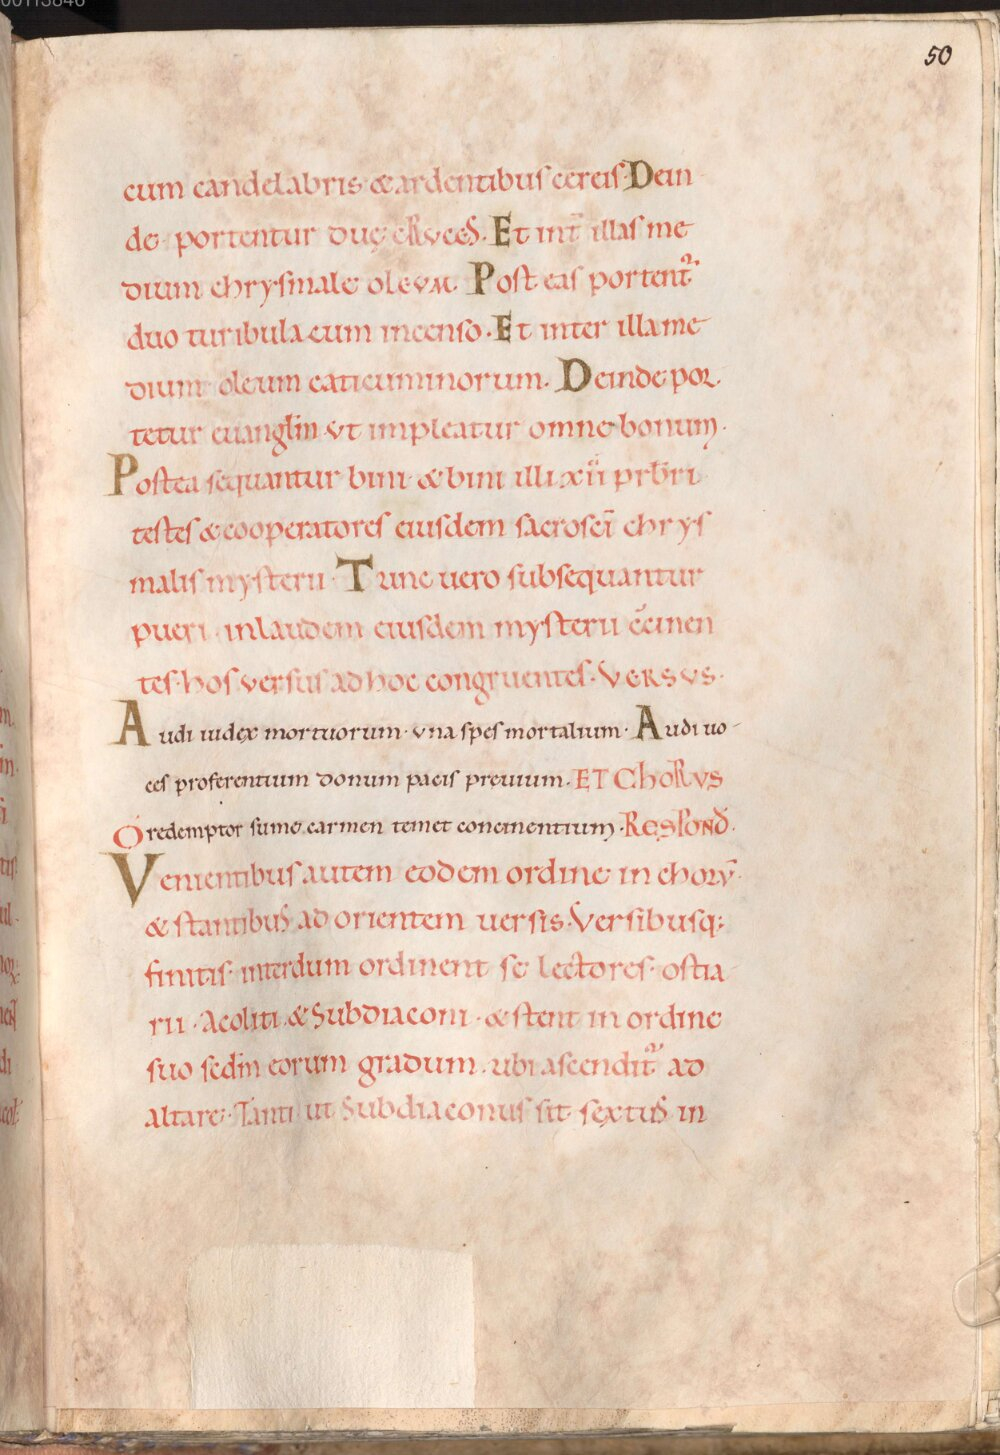 50
cum candelabris & ardentibus cereis. Dein
de portentur duę cruces. Et int̄ illas me
dium chrysmale oleum. Post eas portent᷑
duo turibula cum incenso. Et inter illa me
dium oleum caticuminorum. Deinde por
tetur euanglm ut impleatur omne bonum.
Postea sequantur bini & bini illi xii prb̄ri
testes & cooperatores eiusdem sacrosc̄i chrys
malis mysterii. Tunc uero subsequantur
pueri in laudem eiusdem mysterii c̄cinen
tes hos uersus ad hoc congruentes. VERSVS.
Audi iudex mortuorum. una spes mortalium. Audi uo
ces proferentium donum pacis preuium. ET CHORVS
O redemptor sume carmen temet concinentium. RESPOND̄.
Venientibus autem eodem ordine in chorū.
& stantibus ad orientem uersis. Versibusq;
finitis. interdum ordinent se lectores. ostia
rii. Acoliti. & Subdiaconi. & stent in ordine
suo sedm eorum gradum. ubi ascendit᷑ ad
altare. Tanti ut Subdiaconus sit sextus in